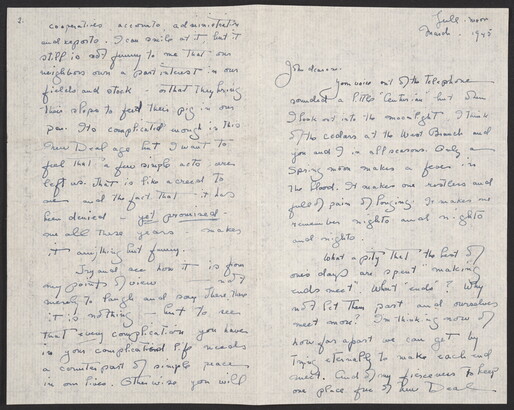 Full moon
March. 1945
John dearest -
Your voice out of the telephone
sounded a little "Centurian" but when
I look out into the moonlight I think
of the cedars at the West Branch and
you and I in all seasons. Only a
Spring moon makes a fever in
the blood. It makes one restless and
full of pain of longing. It makes me
remember nights and nights
and nights.
What a pity that the best of
ones days are spent "making
ends meet". What "ends"? Why
not let them part and ourselves
meet more? I'm thinking now of
how far apart we can get by
trying eternally to make each end
meet. And of my fierceness to keep
one place free of New Deal
2.
cooperatives accounts administrators
and reports. I can smile at it, but it
still is not funny to me that our
neighbors own a part interest in our
fields and stock - or that they bring
their slops to feed their pig in our
pen. Its complicated enough in this
New Deal age but I want to
feel that a few simple acts were
left us. That is like a creed to
me and the fact that it has
been denied - yet promised -
me all these years makes
it anything but funny.
Try and see how it is from
my points of view - not
merely to laugh and say there there
it is nothing - but to see
that every complication you have
in your complicated life needs
a counterpart of simple peace
in our lives. Otherwise you will